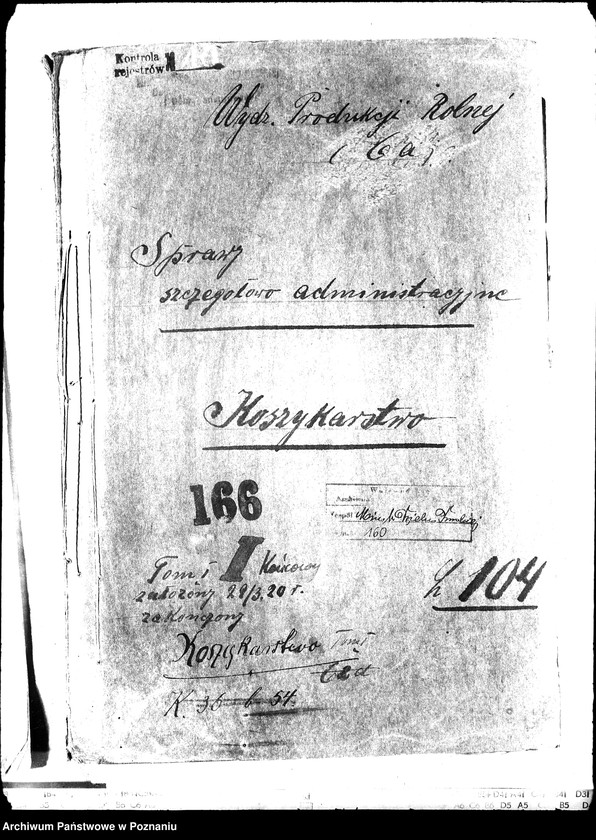 Kontrola
rejestrów
Wydz. Produkcji Rolnej
(6a)
Sprawy
szczegółowo administracyjne
Koszykarstwo
166
Archiwum
Zespół Minist.
160
Tom I I Końcowy
założony 28/3.20 r.
zakończony
L 104
Koszykarstwo Tom I
62d
K. 36 b 54.
D5 A5
B5
Archiwum Państwowe w Poznaniu